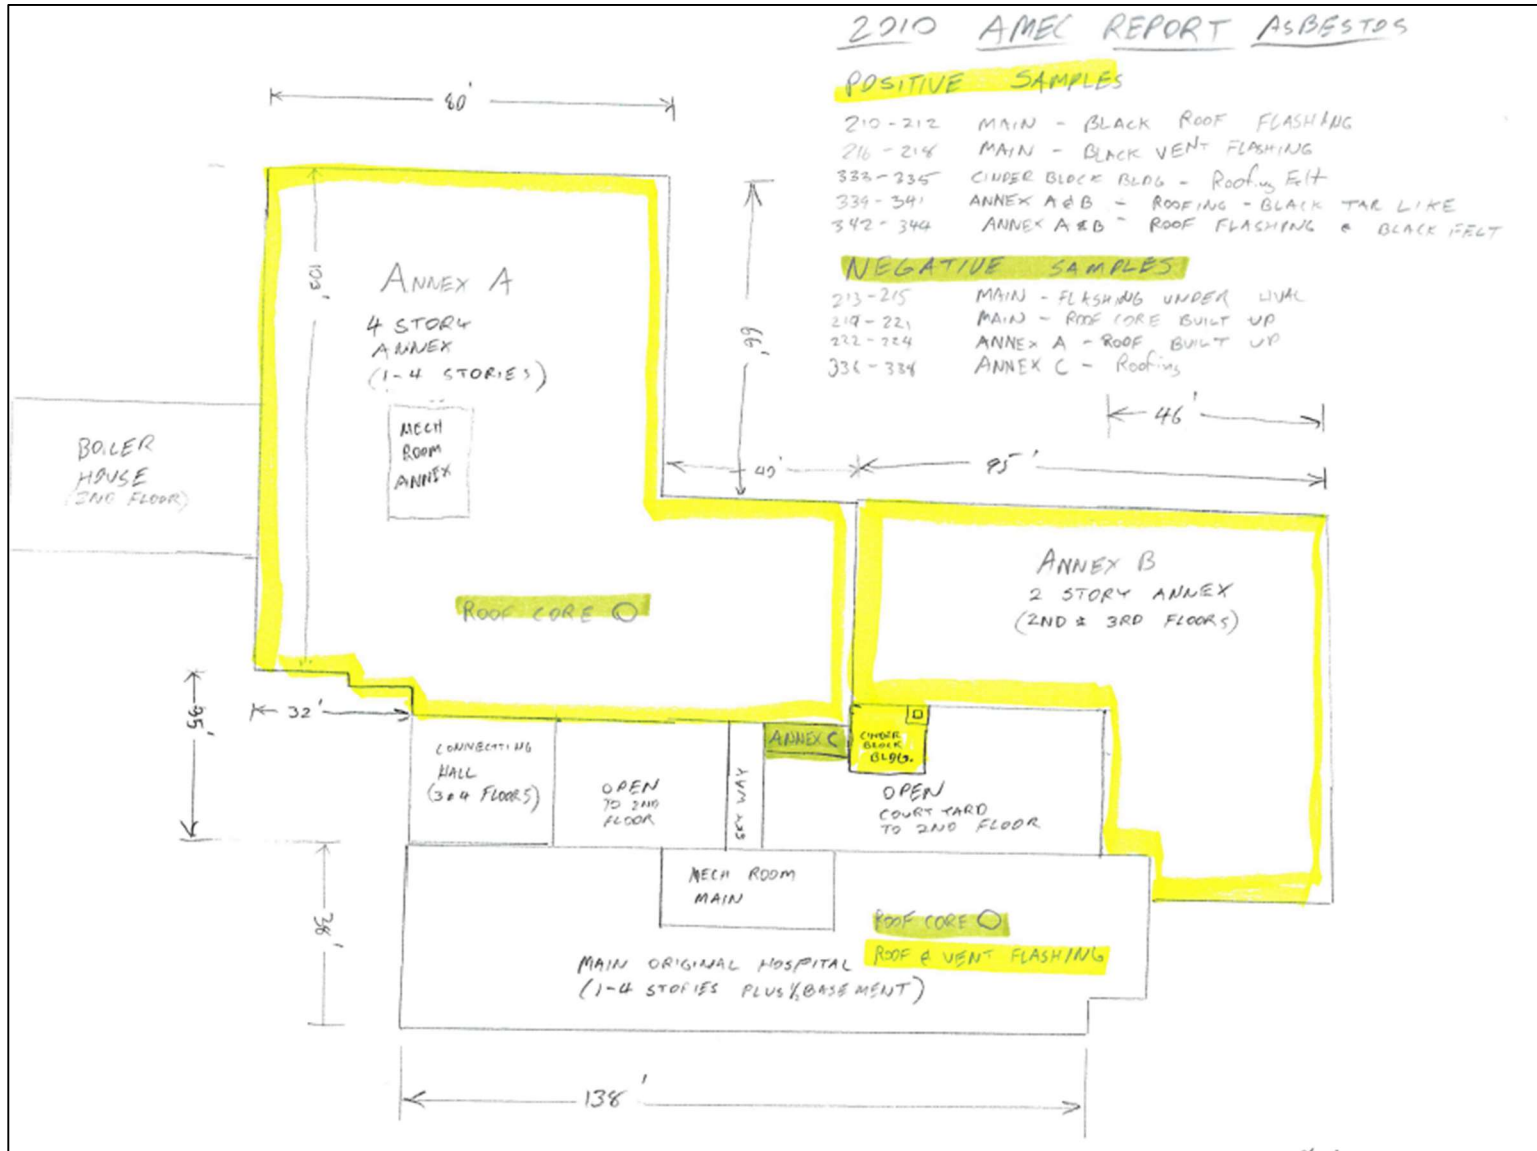 2010 AMEC REPORT ASBESTOS
POSITIVE SAMPLES
210-212 MAIN - BLACK ROOF FLASHING
216-218 MAIN - BLACK VENT FLASHING
333-335 CINDER BLOCK BLDG - Roofing Felt
339-341 ANNEX A & B - ROOFING - BLACK TAR LIKE
342-344 ANNEX A & B - ROOF FLASHING & BLACK FELT
NEGATIVE SAMPLES
213-215 MAIN - FLASHING UNDER
219-221 MAIN - ROOF CORE BUILT UP
222-224 ANNEX A - ROOF BUILT UP
336-338 ANNEX C - Roofing
80'
103'
66'
ANNEX A
4 STORY
ANNEX
(1-4 STORIES)
MECH
ROOM
ANNEX
BOILER
HOUSE
(2ND FLOOR)
46'
40'
95'
ANNEX B
2 STORY ANNEX
(2ND & 3RD FLOORS)
ROOF CORE
35'
32'
CONNECTING
HALL
(3&4 FLOORS)
OPEN
TO 2ND
FLOOR
SKY WAY
ANNEX C
CINDER
BLOCK
BLDG.
OPEN
COURT YARD
TO 2ND FLOOR
MECH ROOM
MAIN
38'
ROOF CORE
ROOF & VENT FLASHING
MAIN ORIGINAL HOSPITAL
(1-4 STORIES PLUS ½ BASEMENT)
138'